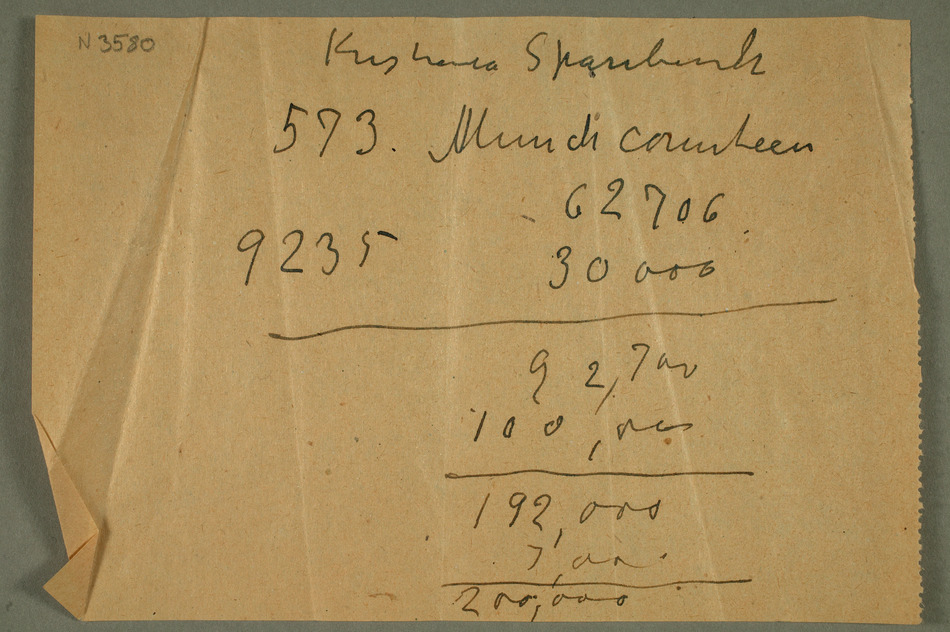 N 3580
Kristiania Sparebank
573. Mundi
62706
9235 30000
92,700
100,000
192,000
7,000
200,000